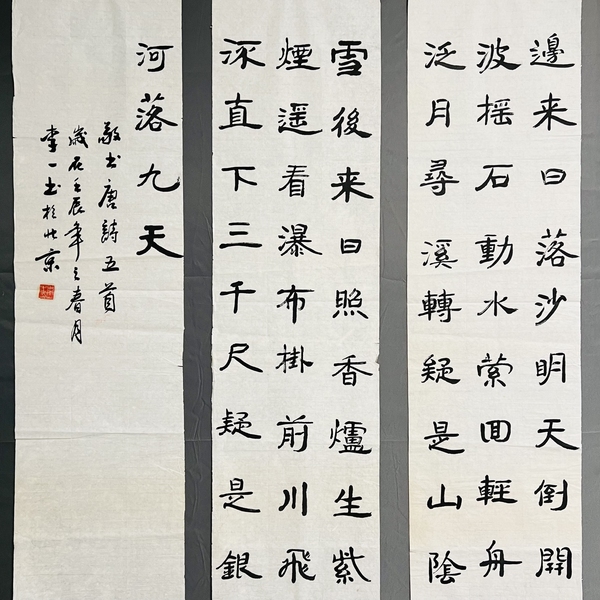 邊来日落沙明天倒開
波摇石動水縈回輕舟
泛月尋溪轉疑是山陰
雪後来日照香爐生紫
煙遥看瀑布掛前川飛
流直下三千尺疑是銀
河落九天
敬书唐詩五首
歲在壬辰年之春月
李一书於北京